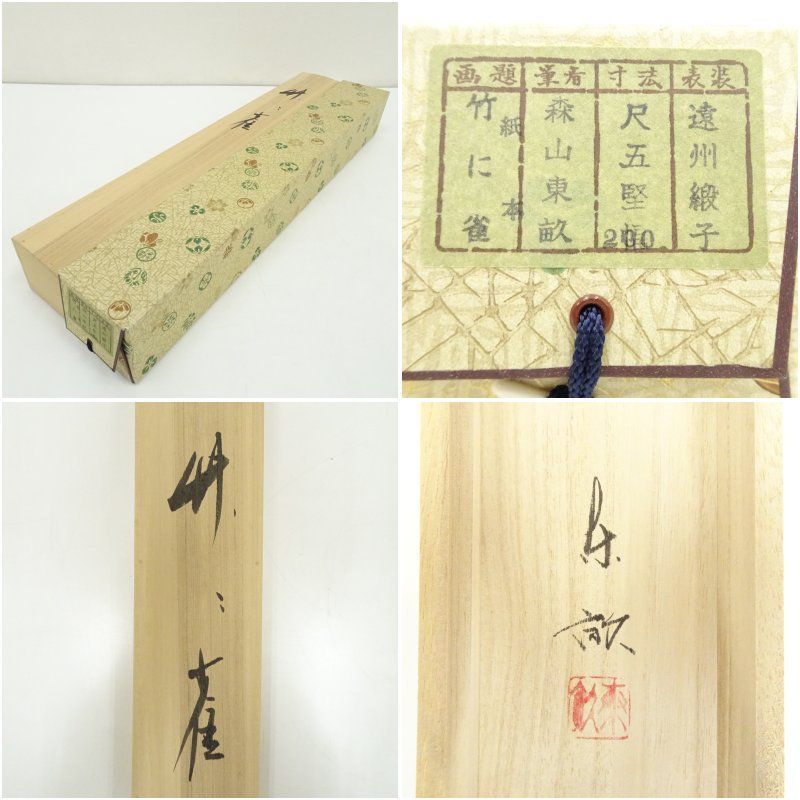 竹に雀
画題
筆者
寸法
表装
竹に雀
紙本
森山東畝
尺五竪
200
遠州緞子
竹に雀
東畝